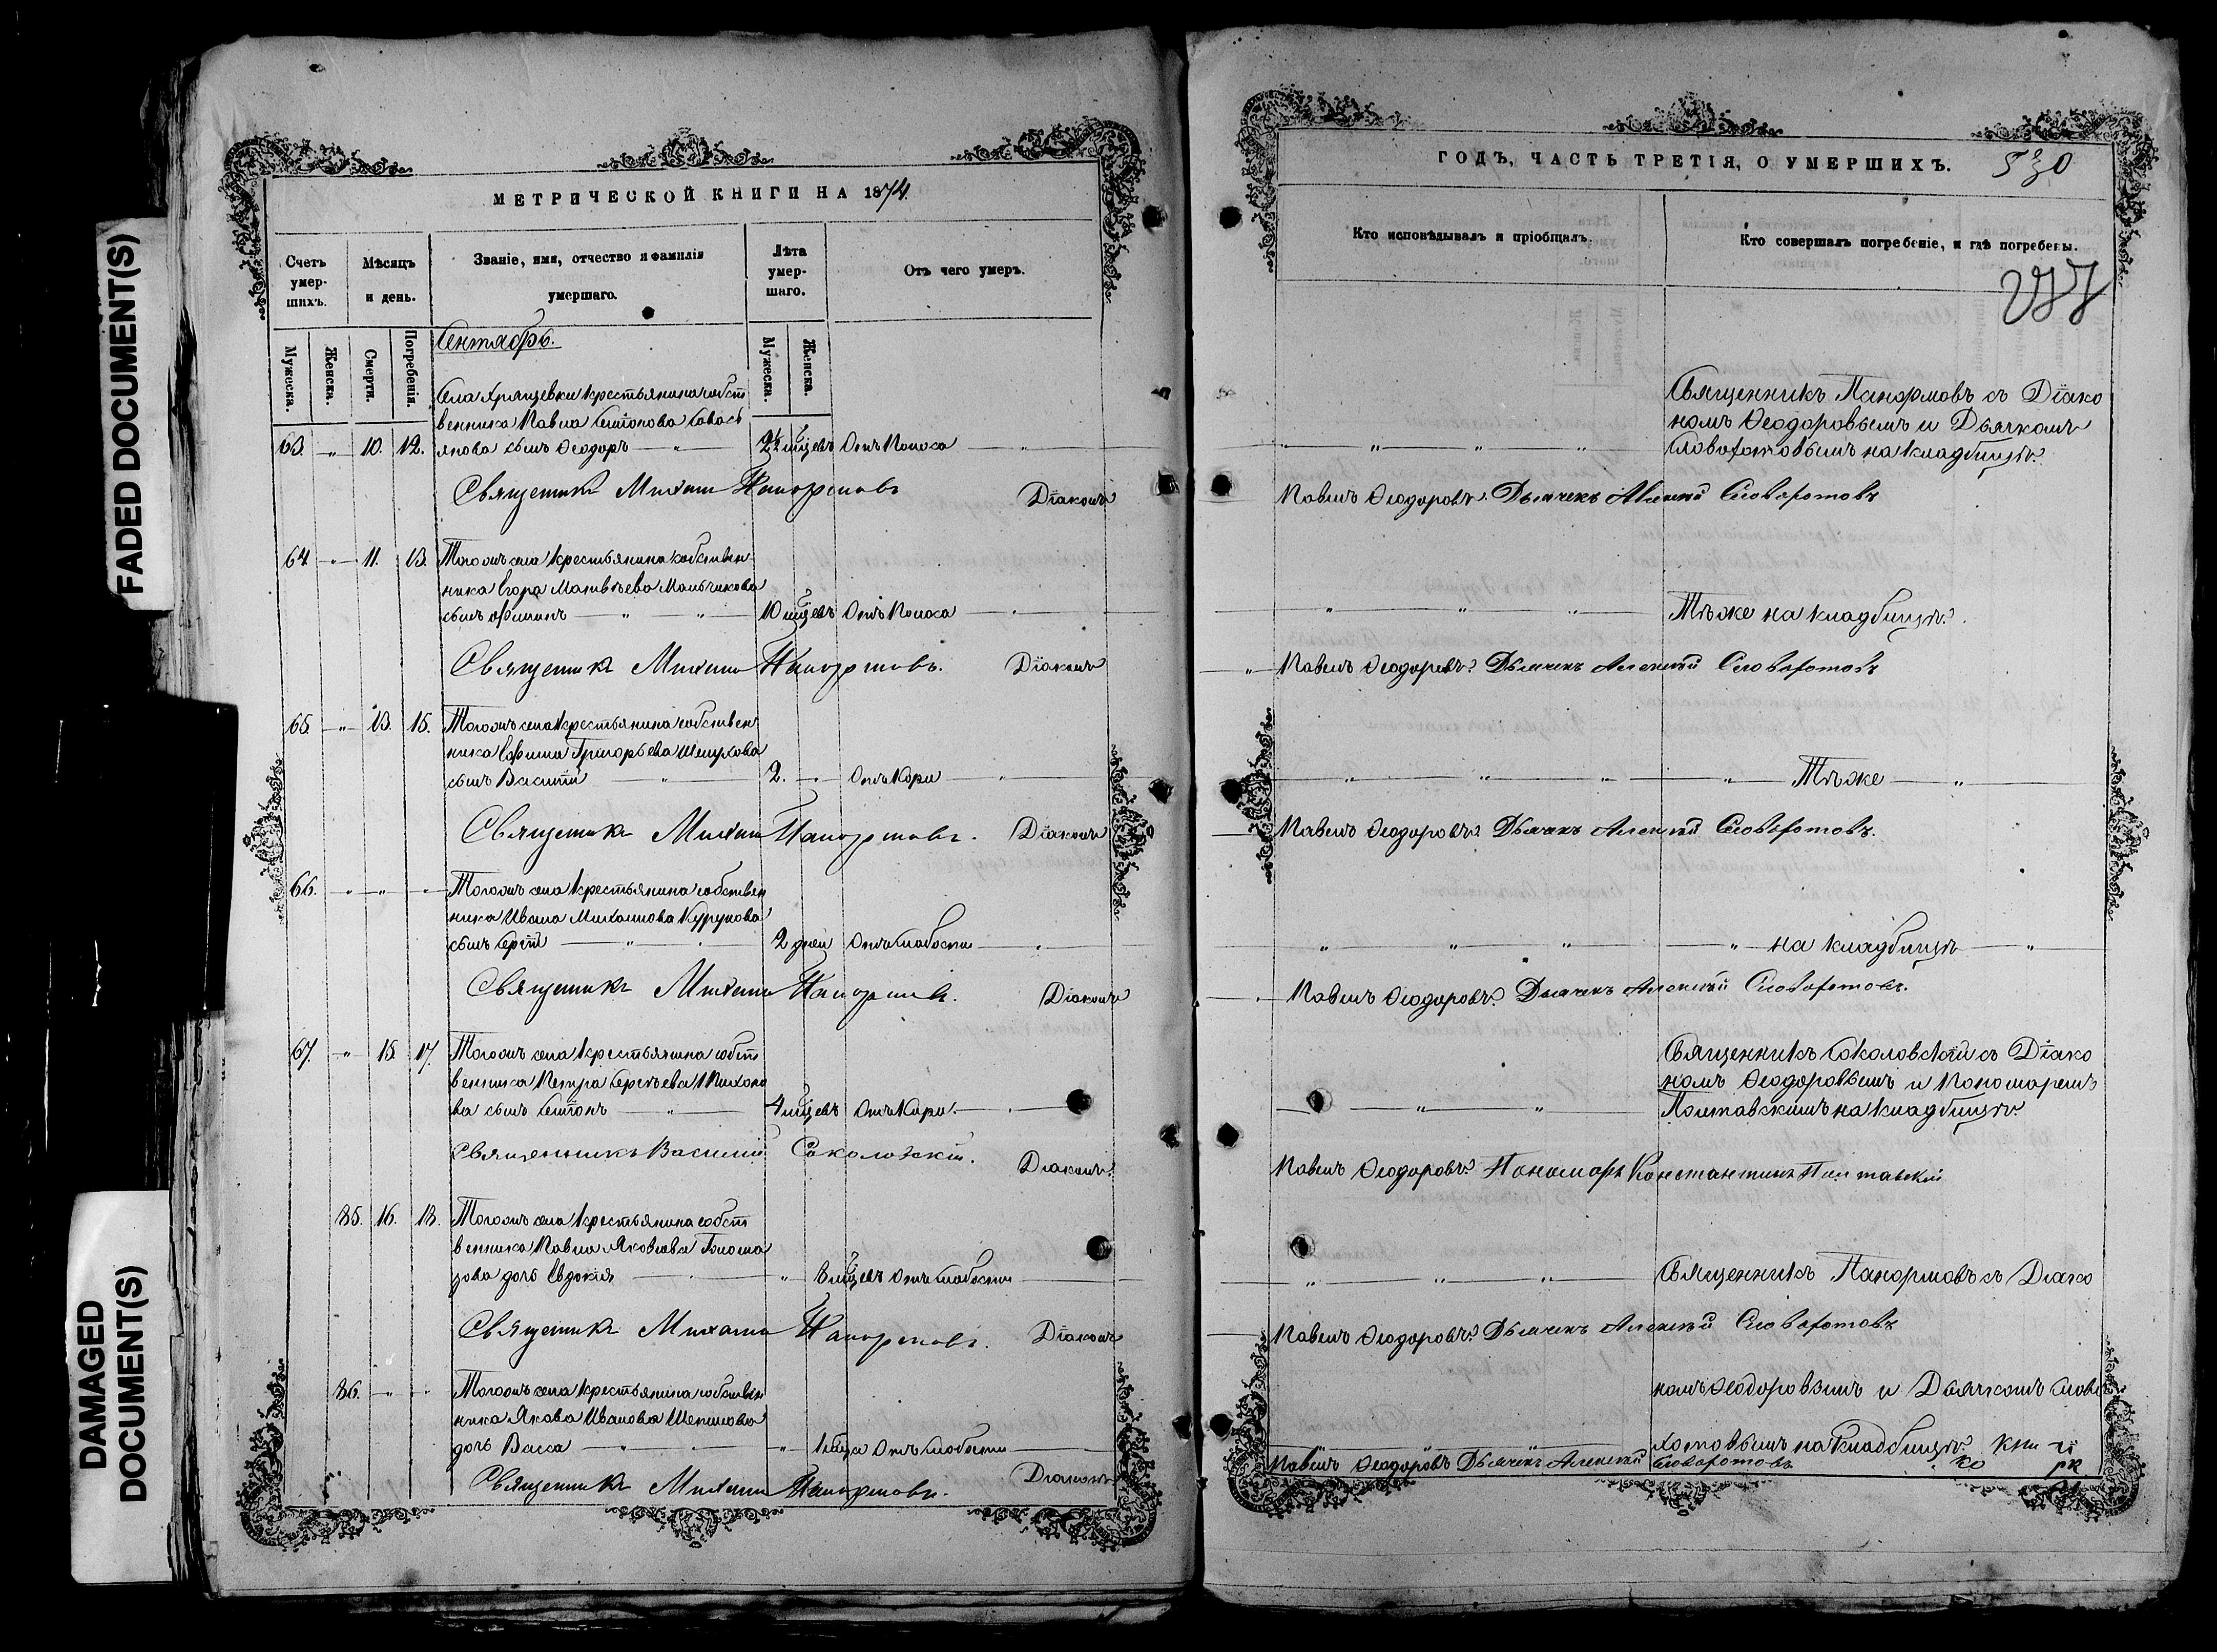 FADED DOCUMENT(S)
DAMAGED
DOCUMENT(S)
МЕТРИЧЕСКОЙ КНИГИ НА 1874.
Счетъ умер- шихъ.
Мѣсяцъ и день.
Званіе, имя, отчество и фамилія умершаго.
Лѣта умер- шаго.
Отъ чего умеръ.
Мужеска.
Женска.
Смерти.
Погребенія.
Мужеска.
Женска.
Сентябрь.
Села Хрящевки крестьянина собст
венника Павла
63. " 10. 12. сынъ Ѳеодоръ 2½ мѣсцевъ Отъ Поноса
Священникъ Михаилъ Панормовъ Діаконъ
64 " 11. 13. Тогожъ села крестьянина собствен
ника Егора Матвѣева Мальчикова
сынъ Филипъ 10 мѣсцевъ Отъ Поноса
Священникъ Михаилъ Панормовъ. Діаконъ
65. " 13. 15. Тогожъ села крестьянина собствен
ника Ефима Григорьева Шелухова
сынъ Василій 2. Отъ Кори
Священникъ Михаилъ Панормовъ. Діаконъ
66. " " " Тогожъ села крестьянина собствен
ника Ивана Михайлова
сынъ Сергій 2 дней Отъ слабости
Священникъ Михаилъ Панормовъ. Діаконъ
67. " 15. 17. Тогожъ села крестьянина собст
венника Петра Сергѣева
ва сынъ 4 мѣсцевъ Отъ Кори.
Священникъ Василій Соколовскій. Діаконъ
85. 16. 18. Тогожъ села крестьянина собст
венника Павла Яковлева
дочь Евдокія " 8 мѣсцевъ Отъ слабости
Священникъ Михаилъ Панормовъ. Діаконъ
86. " " Тогожъ села крестьянина собствен
ника Якова Иванова
дочь Васса " 1 мѣсца Отъ слабости
Священникъ Михаилъ Панормовъ. Діаконъ
ГОДЪ, ЧАСТЬ ТРЕТІЯ, О УМЕРШИХЪ. 530
Кто исповѣдывалъ и пріобщалъ.
Кто совершалъ погребеніе, и гдѣ погребены.
277
Священникъ Панормовъ съ Діако
номъ Ѳеодоровымъ и Дьячкомъ
Словохотовымъ на кладбищѣ.
Павелъ Ѳеодоровъ. Дьячекъ Алексѣй Словохотовъ
Тѣже на кладбищѣ.
Павелъ Ѳеодоровъ. Дьячекъ Алексѣй Словохотовъ
Тѣже
Павелъ Ѳеодоровъ. Дьячекъ Алексѣй Словохотовъ.
на кладбищѣ
Павелъ Ѳеодоровъ. Дьячекъ Алексѣй Словохотовъ.
Священникъ Соколовскій съ Діако
номъ Ѳеодоровымъ и Пономаремъ
Полтавскимъ на кладбищѣ.
Павелъ Ѳеодоровъ. Пономарь Константинъ Полтавскій
Священникъ Панормовъ съ Діако
Павелъ Ѳеодоровъ. Дьячекъ Алексѣй Словохотовъ
номъ Ѳеодоровымъ и Дьячкомъ Слово
хотовымъ на кладбищѣ.
Павелъ Ѳеодоровъ Дьячекъ Алексѣй Словохотовъ